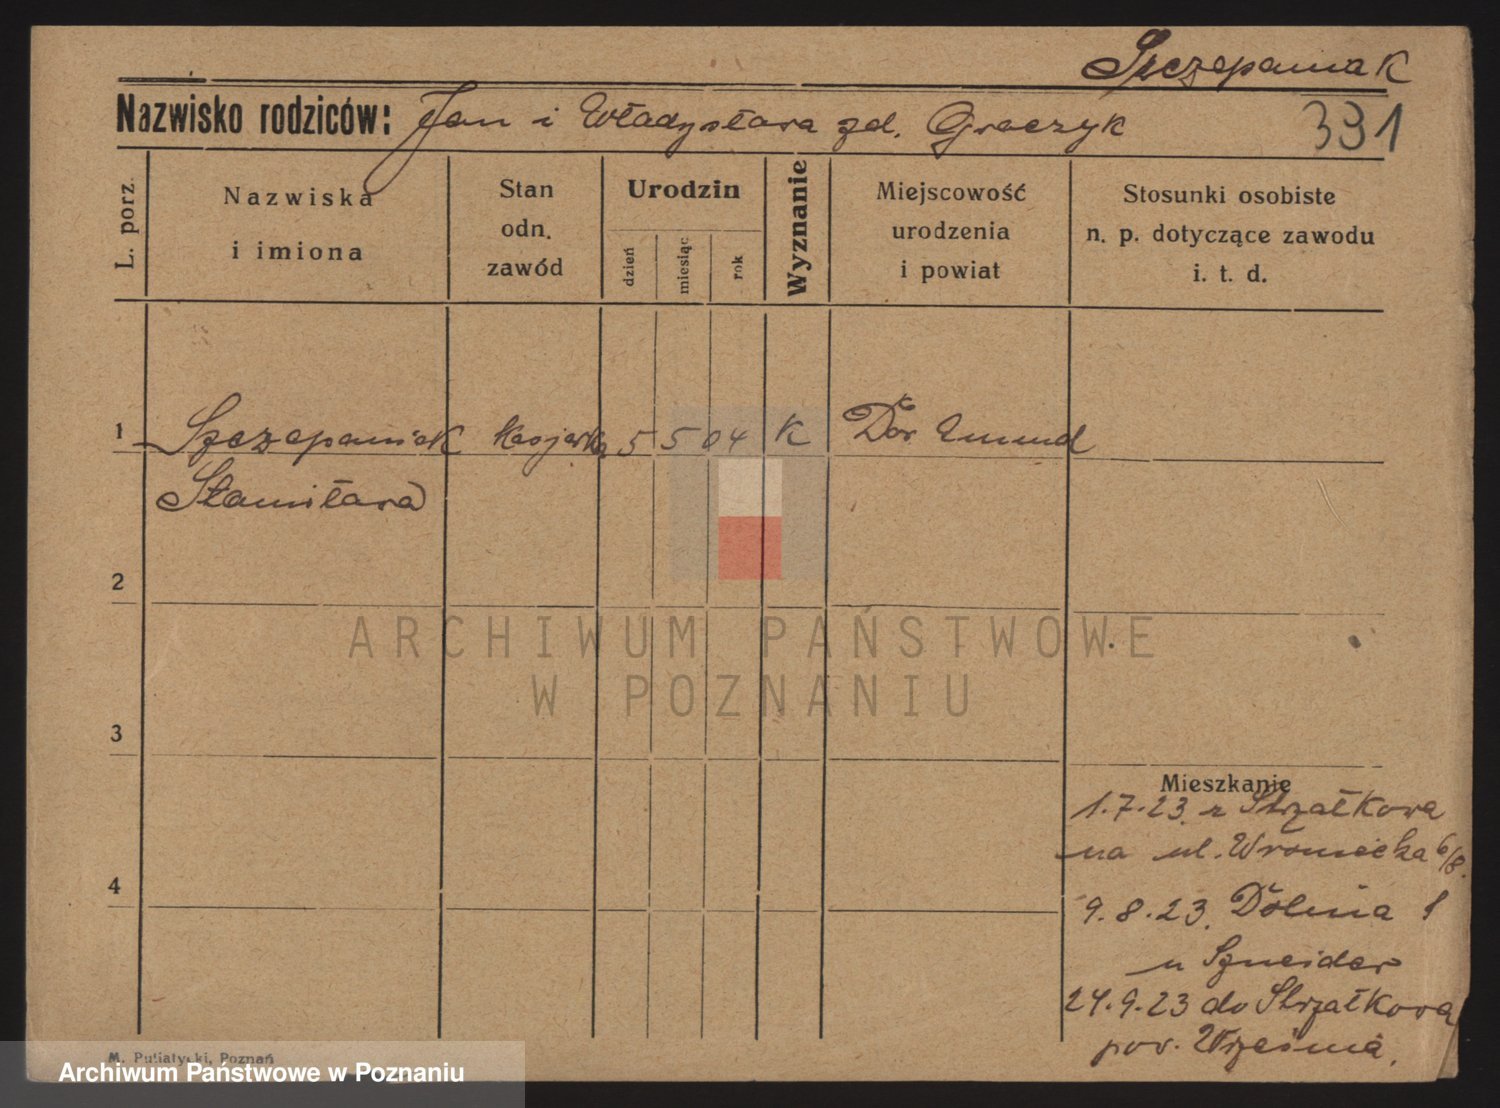 Szczepaniak
Nazwisko rodziców: Jan i Władysława zd. Graczyk
391
L. porz.
Nazwiska
i imiona
Stan
odn.
zawód
Urodzin
dzień
miesiąc
rok
Wyznanie
Miejscowość
urodzenia
i powiat
Stosunki osobiste
n. p. dotyczące zawodu
i. t. d.
1 Szczepaniak kasjerka 5 5 04 K Dor
Stanisława
2
ARCHIWUM PAŃSTWOWE
W POZNANIU
3
Mieszkanie
1.7.23. z Strzałkowa
na ul. Wroniecka 6/8.
4
9.8.23. Dolina 1
u Szneider
24.9.23 do Strzałkowa
pow. Września.
M. Putiatycki, Poznań
Archiwum Państwowe w Poznaniu